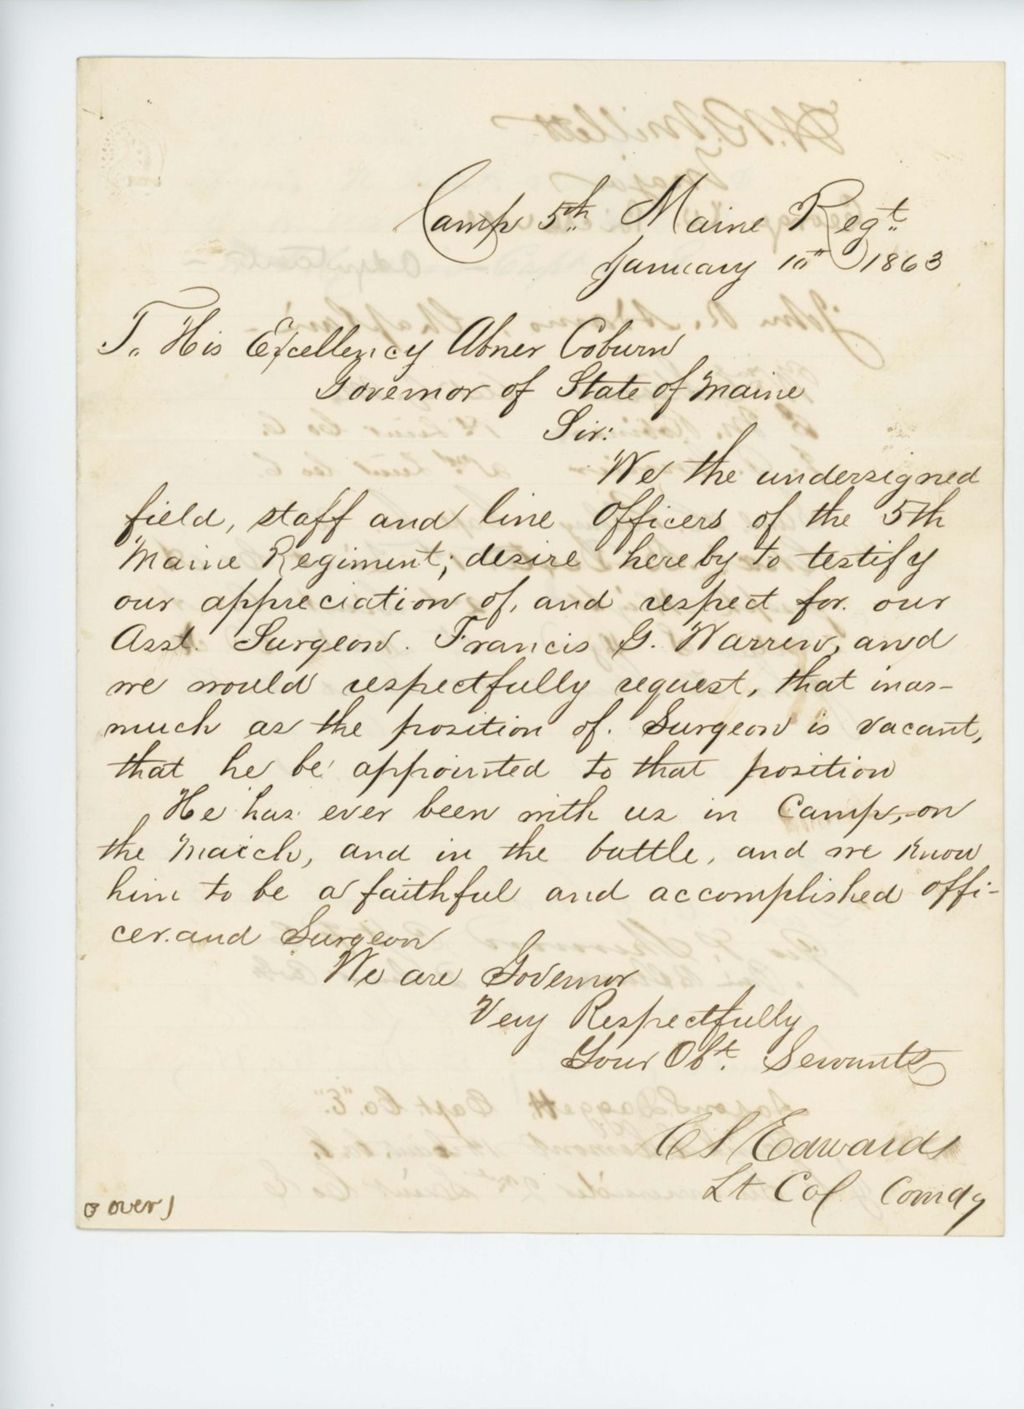 Camp 5th Maine Regt
January 10th 1863
To His Excellency Abner Coburn
Governor of State of Maine
Sir:
We the undersigned
field, staff and line Officers of the 5th
Maine Regiment; desire hereby to testify
our appreciation of, and respect for our
Asst. Surgeon. Francis G. Warren, and
we would respectfully request, that inas-
much as the position of. Surgeon is vacant,
that he be appointed to that position
He has ever been with us in Camp, on
the March, and in the battle, and we know
him to be a faithful and accomplished offi-
cer. and Surgeon
We are Governor
Very Respectfully
Your Obt. Servants
C S Edwards
Lt Col Comdg
over)